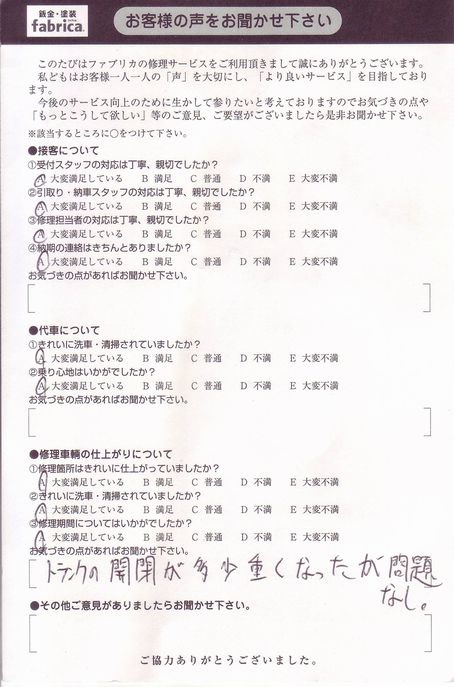 鈑金・塗装
fabrica.
お客様の声をお聞かせ下さい
このたびはファブリカの修理サービスをご利用頂きまして誠にありがとうございます。
私どもはお客様一人一人の「声」を大切にし、「より良いサービス」を目指しており
ます。
今後のサービス向上のために生かして参りたいと考えておりますのでお気づきの点や
「もっとこうして欲しい」等のご意見、ご要望がございましたら是非お聞かせ下さい。
※該当するところに○をつけて下さい。
●接客について
①受付スタッフの対応は丁寧、親切でしたか?
A 大変満足している B 満足 C 普通 D 不満 E 大変不満
②引取り・納車スタッフの対応は丁寧、親切でしたか?
A 大変満足している B 満足 C 普通 D 不満 E 大変不満
③修理担当者の対応は丁寧、親切でしたか?
A 大変満足している B 満足 C 普通 D 不満 E 大変不満
④納期の連絡はきちんとありましたか?
A 大変満足している B 満足 C 普通 D 不満 E 大変不満
お気づきの点があればお聞かせ下さい。
●代車について
①きれいに洗車・清掃されていましたか?
A 大変満足している B 満足 C 普通 D 不満 E 大変不満
②乗り心地はいかがでしたか?
A 大変満足している B 満足 C 普通 D 不満 E 大変不満
お気づきの点があればお聞かせ下さい。
●修理車輌の仕上がりについて
①修理箇所はきれいに仕上がっていましたか?
A 大変満足している B 満足 C 普通 D 不満 E 大変不満
②きれいに洗車・清掃されていましたか?
A 大変満足している B 満足 C 普通 D 不満 E 大変不満
③修理期間についてはいかがでしたか?
A 大変満足している B 満足 C 普通 D 不満 E 大変不満
お気づきの点があればお聞かせ下さい。
トランクの開閉が多少重くなったが問題
なし。
●その他ご意見がありましたらお聞かせ下さい。
ご協力ありがとうございました。